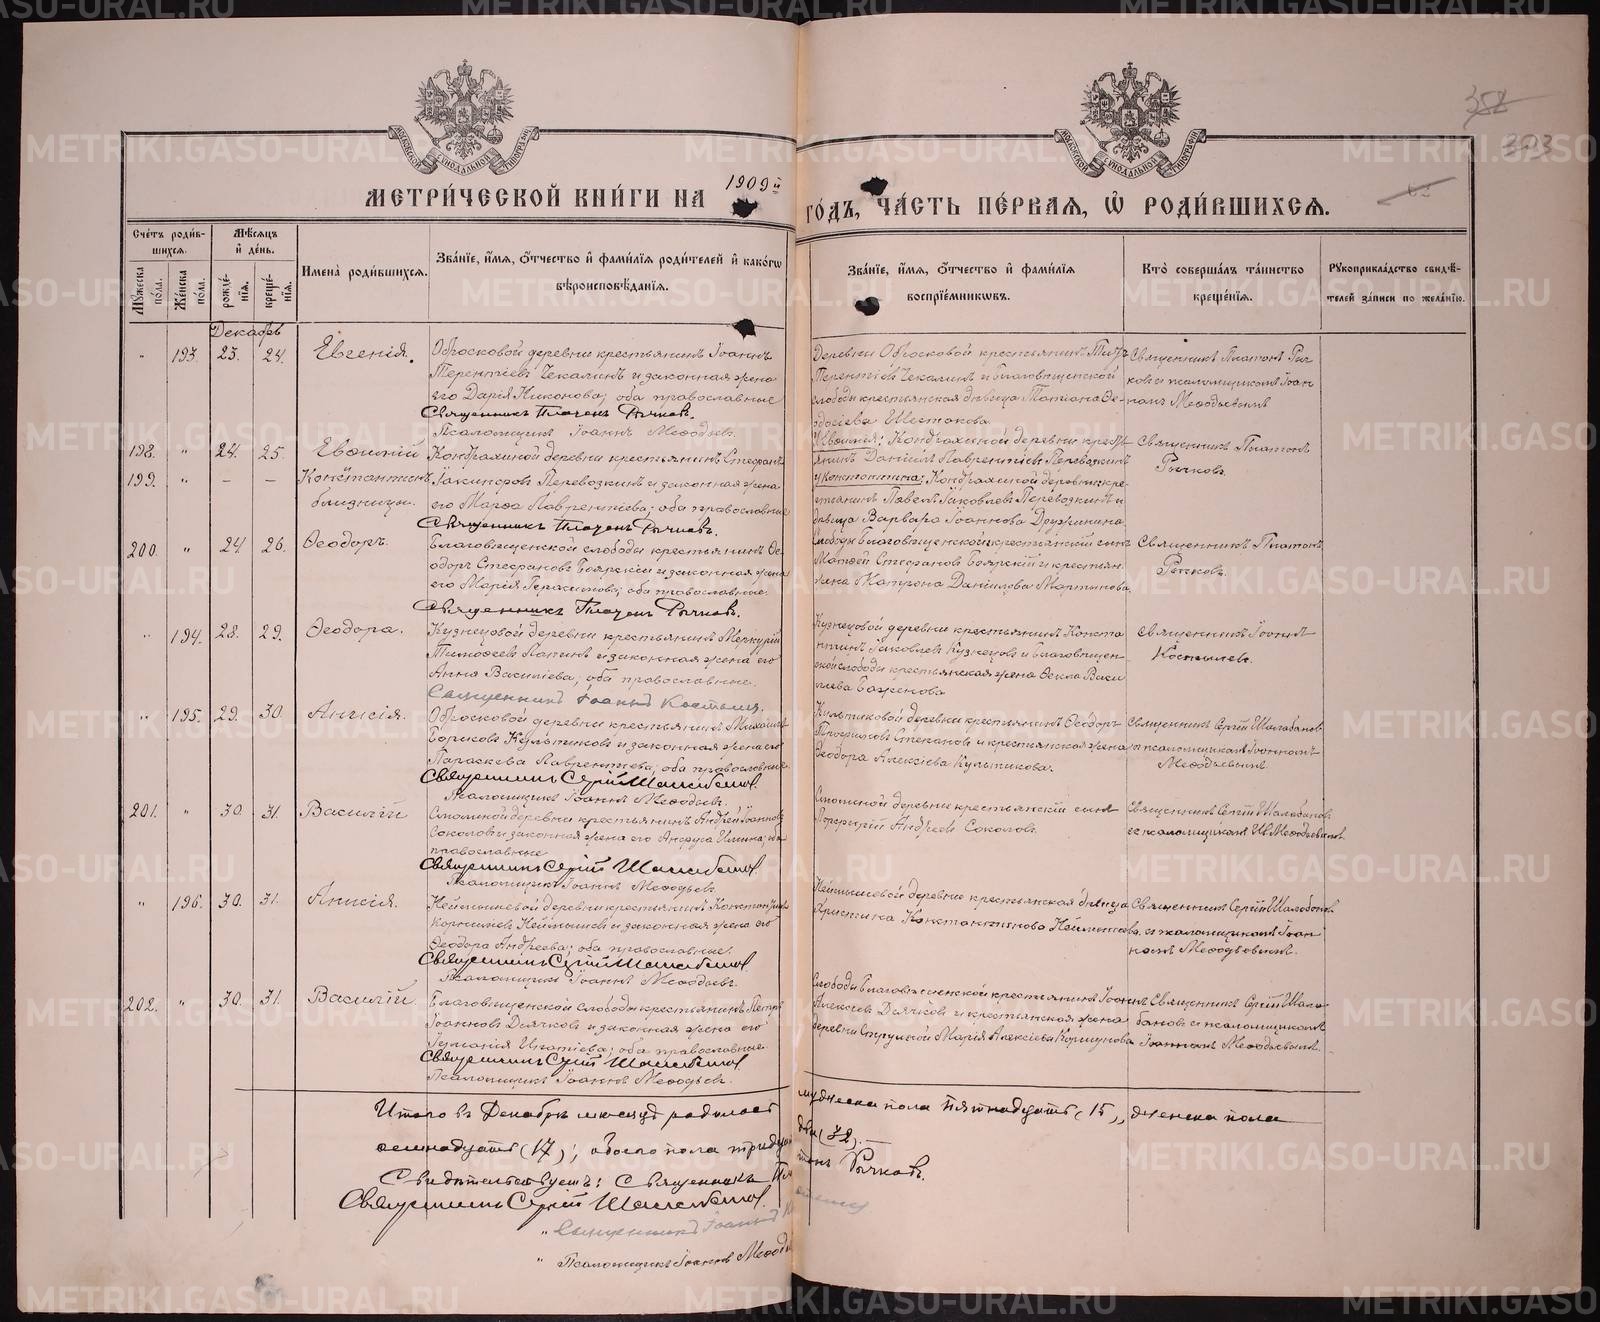 358
393
63
МЕТРИ́ЧЕСКОЙ КНИ́ГИ НА 1909й ГО́ДЪ, ЧА́СТЬ ПЕ́РВАЯ, Ѡ РОДИ́ВШИХСЯ.
Сче́тъ роди́в-
шихся.
Мѣ́сяцъ
и҆ де́нь.
Мꙋ́жеска по́ла.
Же́нска по́ла.
рожде́-
нїя.
креще́-
нїя.
И҆мена̀ роди́вшихся.
Зва́нїе, и҆́мя, ѻ҆́тчество и҆ фами́лїя роди́телей и҆ како́гѡ
вѣроисповѣ́данїя.
Зва́нїе, и҆́мя, ѻ҆́тчество и҆ фами́лїя
воспрїе́мникѡвъ.
Кто̀ соверша́лъ та́инство
креще́нїя.
Рꙋкоприкла́дство свидѣ́-
телей за́писи по жела́нїю.
Декабрь
" 193. 23. 24. Евгенія.
Обросковой деревни крестьянинъ Іоаннъ
Терентіевъ Чекалинъ и законная жена
его Дарія Никонова; оба православные
Священникъ Платонъ Рычковъ.
Псаломщикъ Іоаннъ Меѳодьевъ.
Деревни Обросковой крестьянинъ
Терентіевъ Чекалинъ и Благовѣщенской
слободы крестьянская дѣвица Татіана Ѳе-
одосіева Шестакова.
Священникъ Платонъ Рыч-
ковъ съ псаломщикомъ Іоан-
номъ Меѳодьевымъ
198. " 24. 25. Евѳимій
199. " – – Константинъ
близнецы.
Кондрахиной деревни крестьянинъ Стефанъ
Перевозкинъ и законная жена
его Марѳа Лаврентіева; оба православные
Священникъ Платонъ Рычковъ.
Евѳимія: Кондрахиной деревни крест-
янинъ Даніилъ Лаврентіевъ Перевозкинъ
у Константина: Кондрахиной деревни кре-
стьянинъ Павелъ Іаковлевъ Перевозкинъ и
дѣвица Варвара Іоаннова Дружинина.
Священникъ Платонъ
Рычковъ.
200. " 24 26. Ѳеодоръ.
Благовѣщенской слободы крестьянинъ Ѳе-
одоръ Стефановъ Боярскій и законная жена
его Марія Герасимова; оба православные.
Священникъ Платонъ Рычковъ.
Слободы Благовѣщенской крестьянскій сынъ
Матѳей Стефановъ Боярскій и крестьян.
жена Матрона Даніилова Мартынова
Священникъ Платонъ
Рычковъ.
" 194. 28. 29. Ѳеодора.
Кузнецовой деревни крестьянинъ Меркурій
Тимоѳеевъ Лапинъ и законная жена его
Анна Василіева; оба православные.
Священникъ Іоаннъ Костылевъ.
Кузнецовой деревни крестьянинъ Конста-
нтинъ Іаковлевъ Кузнецовъ и Благовѣщен-
ской слободы крестьянская жена Ѳекла Васи-
льева Баженова
Священникъ Іоаннъ
Костылевъ.
" 195. 29. 30. Анисія.
Обросковой деревни крестьянинъ Михаилъ
Борисовъ Культиковъ и законная жена его
Параскева Лаврентіева; оба православные.
Священникъ Сергій Шалабановъ.
Псаломщикъ Іоаннъ Меѳодьевъ.
Культиковой деревни крестьянинъ Ѳеодоръ
Трофимовъ Степановъ и крестьянская жена
Ѳеодора Алексіева Культикова.
Священникъ Сергій Шалабановъ
съ псаломщикомъ Іоанномъ
Меѳодьевымъ.
201. " 30. 31. Василій
деревни крестьянинъ Андрей Іоанновъ
Соколовъ и законная жена его Анфуса Ильина; оба
православные
Священникъ Сергій Шалабановъ.
Псаломщикъ Іоаннъ Меѳодьевъ.
деревни крестьянскій сынъ
Порфирій Андреевъ Соколовъ.
Священникъ Сергій Шалабановъ
съ псаломщикомъ Ів. Меѳодьевымъ
" 196. 30. 31. Анисія.
Неймышевой деревни крестьянинъ Константинъ
Корниліевъ Неймышевъ и законная жена его
Ѳеодора Андреева; оба православные.
Священникъ Сергій Шалабановъ
Псаломщикъ Іоаннъ Меѳодьевъ.
Неймышевой деревни крестьянская дѣвица
Христина Константинова Неймышева
Священникъ Сергій Шалабановъ
съ псаломщикомъ Іоан-
номъ Меѳодьевымъ.
202. " 30. 31. Василій.
Благовѣщенской слободы крестьянинъ Петръ
Іоанновъ Дьячковъ и законная жена его
Іуліанія Игнатіева; оба православные.
Священникъ Сергій Шалабановъ
Псаломщикъ Іоаннъ Меѳодьевъ.
Слободы Благовѣщенской крестьянинъ Іоаннъ
Алексіевъ Дьячковъ и крестьянская жена
деревни Марія Алексіева Коршунова
Священникъ Сергій Шала-
бановъ съ псаломщикомъ
Іоанномъ Меѳодьевымъ.
Итого въ Декабрѣ мѣсяцѣ родилось мужеска пола пятнадцать (15), женска пола
семнадцать (17); обоего пола тридцать два (32).
Свидѣтельствуетъ: Священникъ Платонъ Рычковъ.
Священникъ Сергій Шалабановъ.
" Священникъ Іоаннъ Костылевъ
" Псаломщикъ Іоаннъ Меѳодьевъ
METRIKI.GASO-URAL.RU